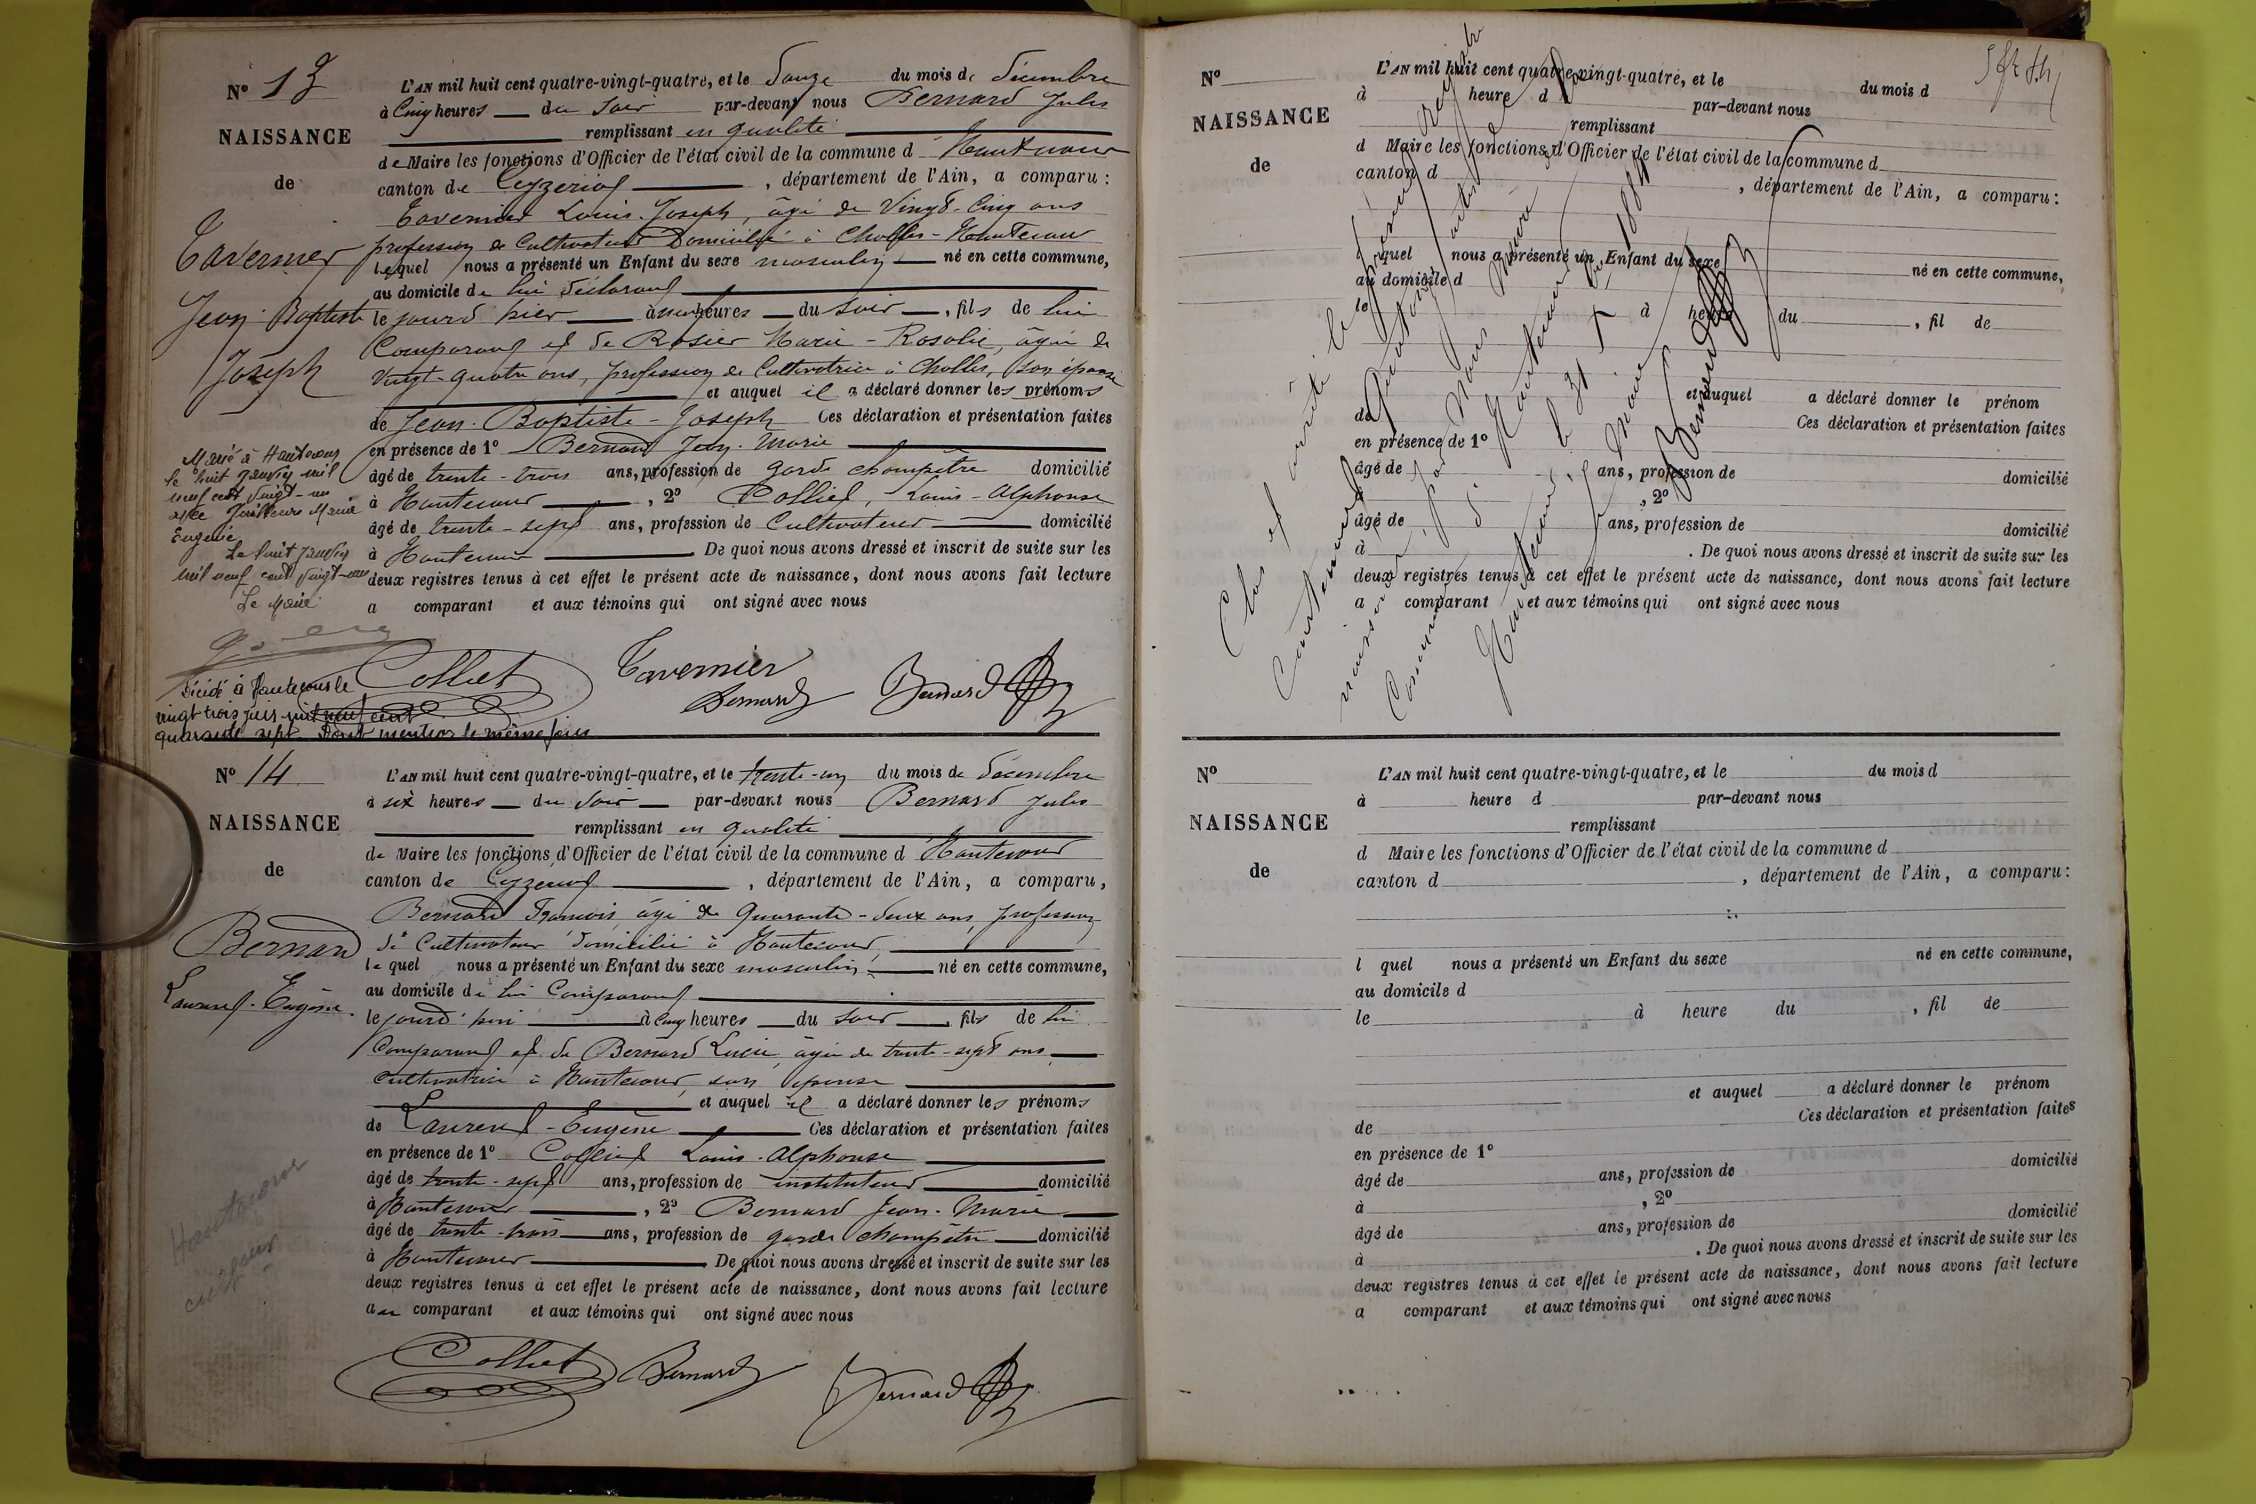 N° 13
NAISSANCE
de
Tavernier
Jean Baptiste
Joseph
Marié à Hautecour
le huit janvier mil
neuf cent vingt-un
avec Marie
Eugénie
Le huit janvier
mil neuf cent vingt-un
Le Maire
Décédé à Hautecour le
vingt trois juin mil neuf cent
quarante sept. Dont mention le même jour
L'AN mil huit cent quatre-vingt-quatre, et le douze du mois de décembre
à cinq heures du soir par-devant nous Bernard Jules
remplissant en qualité
de Maire les fonctions d'Officier de l'état civil de la commune d Hautecour
canton de Ceyzériat, département de l'Ain, a comparu :
Tavernier Louis Joseph, âgé de vingt-cinq ans
profession de Cultivateur domicilié à Challes-Hautecour
lequel nous a présenté un Enfant du sexe masculin né en cette commune,
au domicile de lui déclarant
le jourd'hier à heures du soir, fils de lui
Comparant et de Rosier Marie-Rosalie, âgée de
vingt-quatre ans, profession de Cultivatrice à Challes, son épouse
et auquel il a déclaré donner les prénoms
de Jean-Baptiste-Joseph Ces déclaration et présentation faites
en présence de 1° Bernard Jean-Marie
âgé de trente-trois ans, profession de garde champêtre domicilié
à Hautecour, 2° Colliet, Louis-Alphonse
âgé de trente-sept ans, profession de Cultivateur domicilié
à Hautecour De quoi nous avons dressé et inscrit de suite sur les
deux registres tenus à cet effet le présent acte de naissance, dont nous avons fait lecture
a comparant et aux témoins qui ont signé avec nous
Colliet Tavernier
Bernard Bernard
N° 14
NAISSANCE
de
Bernard
Laurent-Eugène
Hautecour
L'AN mil huit cent quatre-vingt-quatre, et le trente-un du mois de décembre
à six heures du soir par-devant nous Bernard Jules
remplissant en qualité
de Maire les fonctions d'Officier de l'état civil de la commune d Hautecour
canton de Ceyzériat, département de l'Ain, a comparu,
Bernard François âgé de quarante-deux ans, profession
de Cultivateur domicilié à Hautecour,
le quel nous a présenté un Enfant du sexe masculin né en cette commune,
au domicile de lui Comparant
le jourd'hui à cinq heures du soir, fils de lui
Comparant et de Bernard Lucie âgée de trente-sept ans
cultivatrice à Hautecour son épouse
et auquel il a déclaré donner les prénoms
de Laurent-Eugène Ces déclaration et présentation faites
en présence de 1° Colliet Louis-Alphonse
âgé de trente-sept ans, profession de instituteur domicilié
à Hautecour, 2° Bernard Jean-Marie
âgé de trente-trois ans, profession de garde champêtre domicilié
à Hautecour De quoi nous avons dressé et inscrit de suite sur les
deux registres tenus à cet effet le présent acte de naissance, dont nous avons fait lecture
au comparant et aux témoins qui ont signé avec nous
Colliet Bernard Bernard
N°
NAISSANCE
de
L'AN mil huit cent quatre-vingt-quatre, et le du mois d
à heure d par-devant nous
remplissant
d Maire les fonctions d'Officier de l'état civil de la commune d
canton d , département de l'Ain, a comparu :
l quel nous a présenté un Enfant du sexe né en cette commune,
au domicile d
le à heure du , fil de
et auquel a déclaré donner le prénom
de Ces déclaration et présentation faites
en présence de 1°
âgé de ans, profession de domicilié
, 2°
âgé de ans, profession de domicilié
à . De quoi nous avons dressé et inscrit de suite sur les
deux registres tenus à cet effet le présent acte de naissance, dont nous avons fait lecture
a comparant et aux témoins qui ont signé avec nous
Clos et arrêté le présent registre
Contenant quatorze actes de
naissance, par nous Maire de la
Commune d'Hautecour
Hautecour, le 31 Xbre 1884
Le Maire
Bernard
N°
NAISSANCE
de
L'AN mil huit cent quatre-vingt-quatre, et le du mois d
à heure d par-devant nous
remplissant
d Maire les fonctions d'Officier de l'état civil de la commune d
canton d , département de l'Ain, a comparu :
l quel nous a présenté un Enfant du sexe né en cette commune,
au domicile d
le à heure du , fil de
et auquel a déclaré donner le prénom
de Ces déclaration et présentation faites
en présence de 1°
âgé de ans, profession de domicilié
à , 2°
âgé de ans, profession de domicilié
à . De quoi nous avons dressé et inscrit de suite sur les
deux registres tenus à cet effet le présent acte de naissance, dont nous avons fait lecture
a comparant et aux témoins qui ont signé avec nous